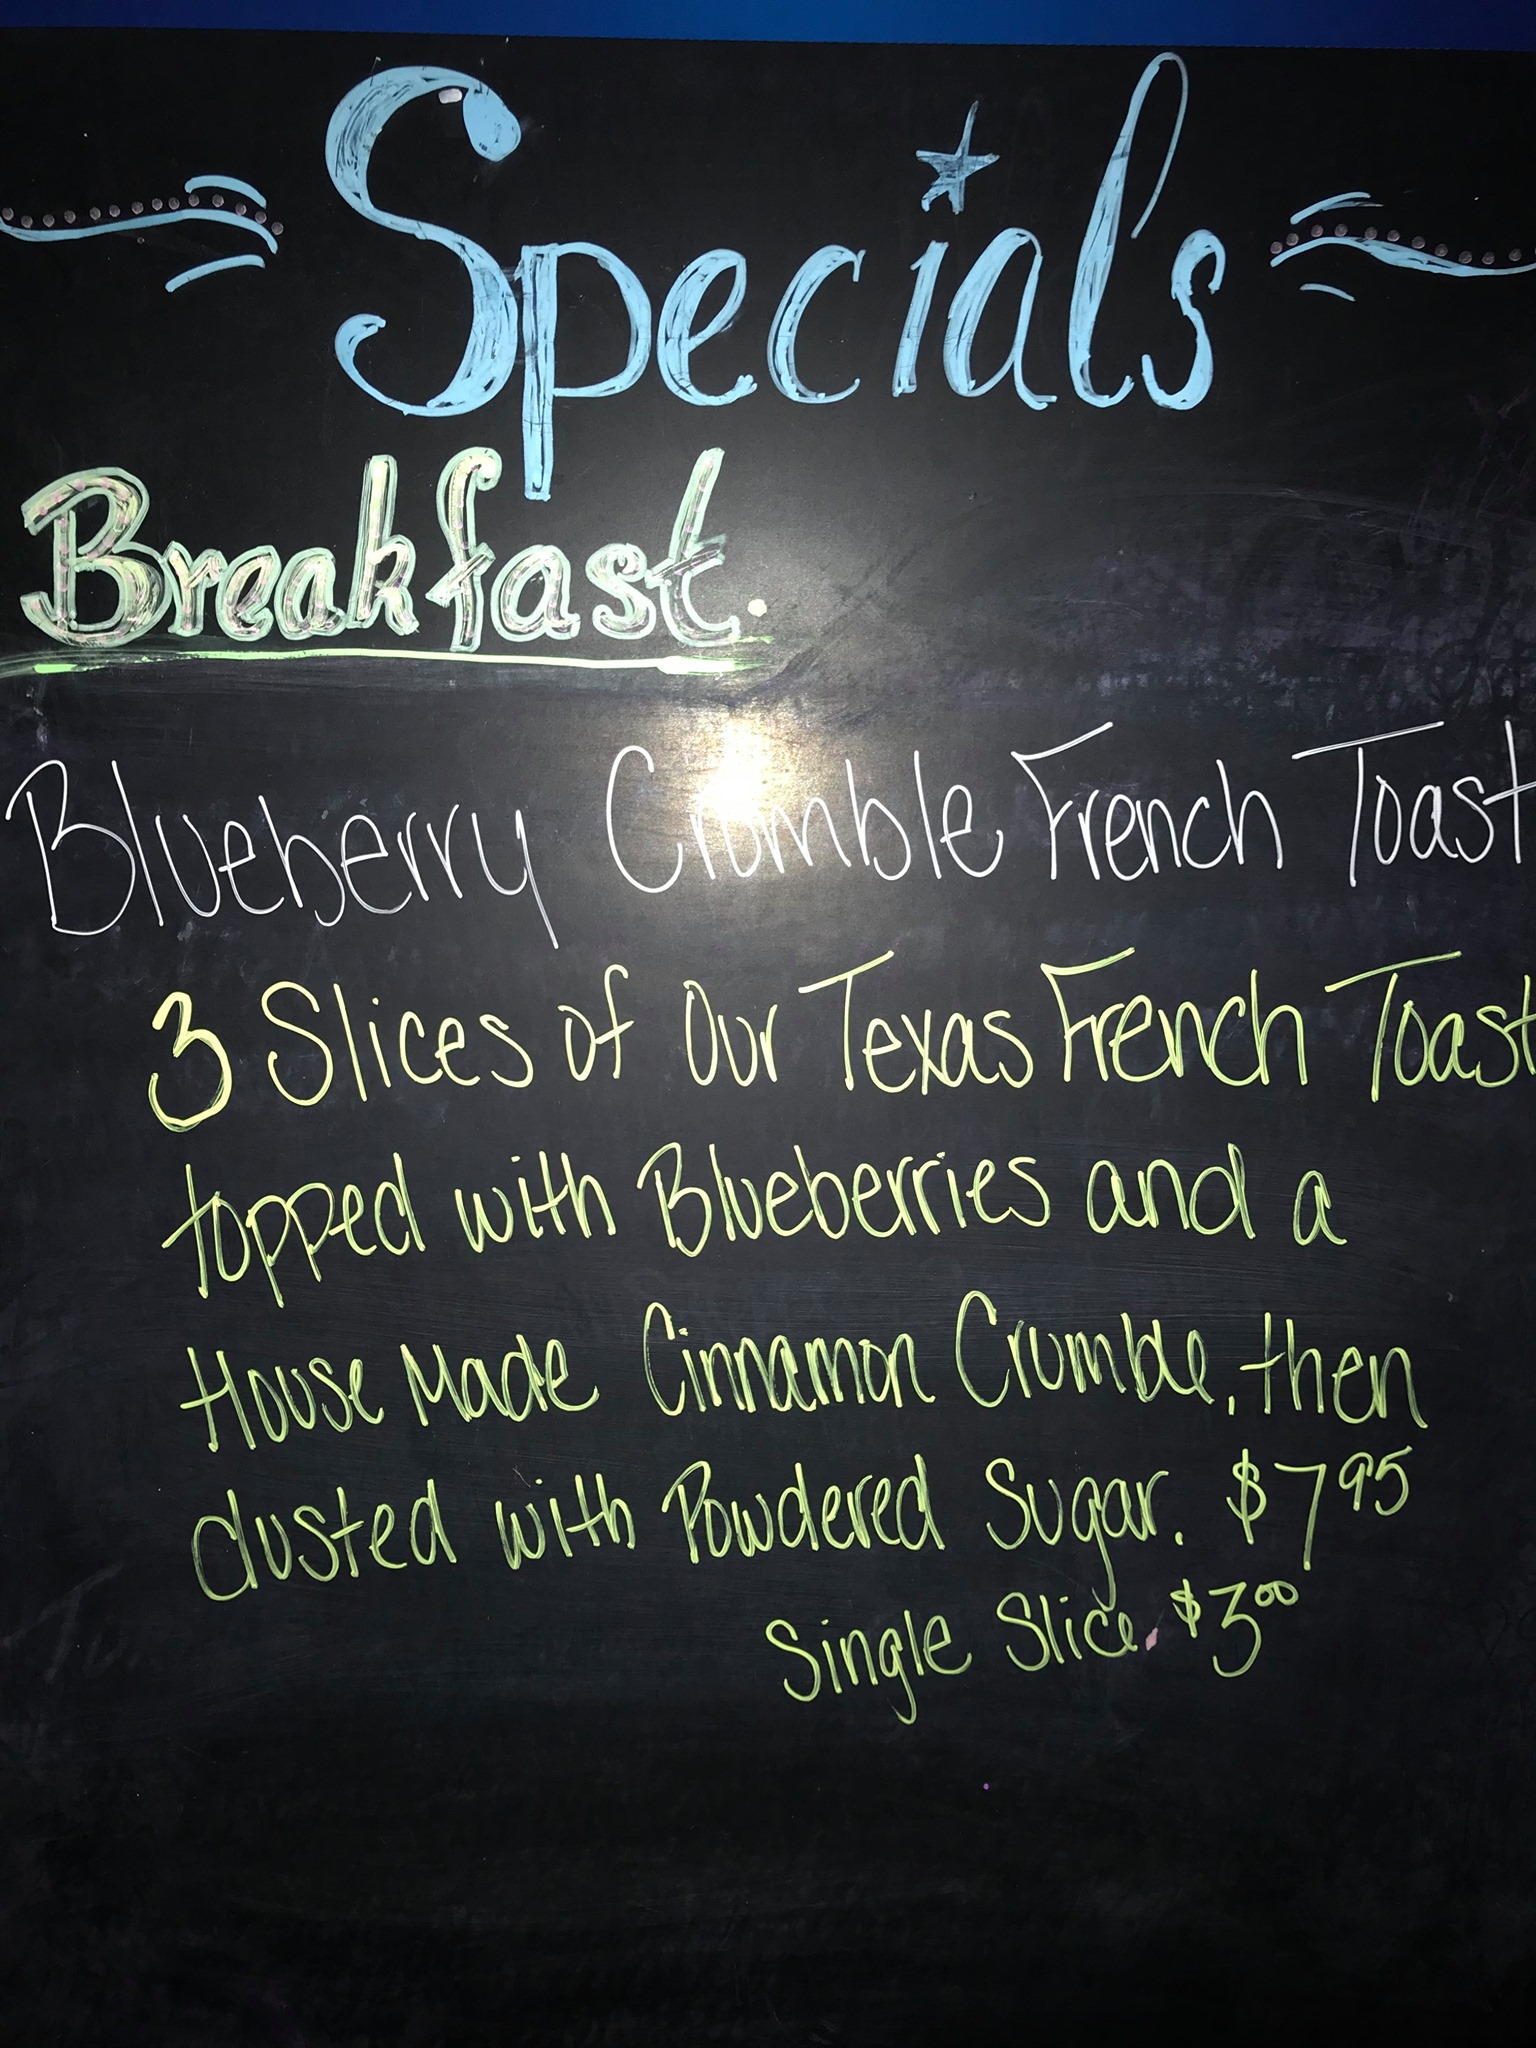 Specials
Breakfast.
Blueberry Crumble French Toast
3 Slices of Our Texas French Toast
topped with Blueberries and a
House Made Cinnamon Crumble, then
dusted with Powdered Sugar. $7.95
Single Slice. $3.00